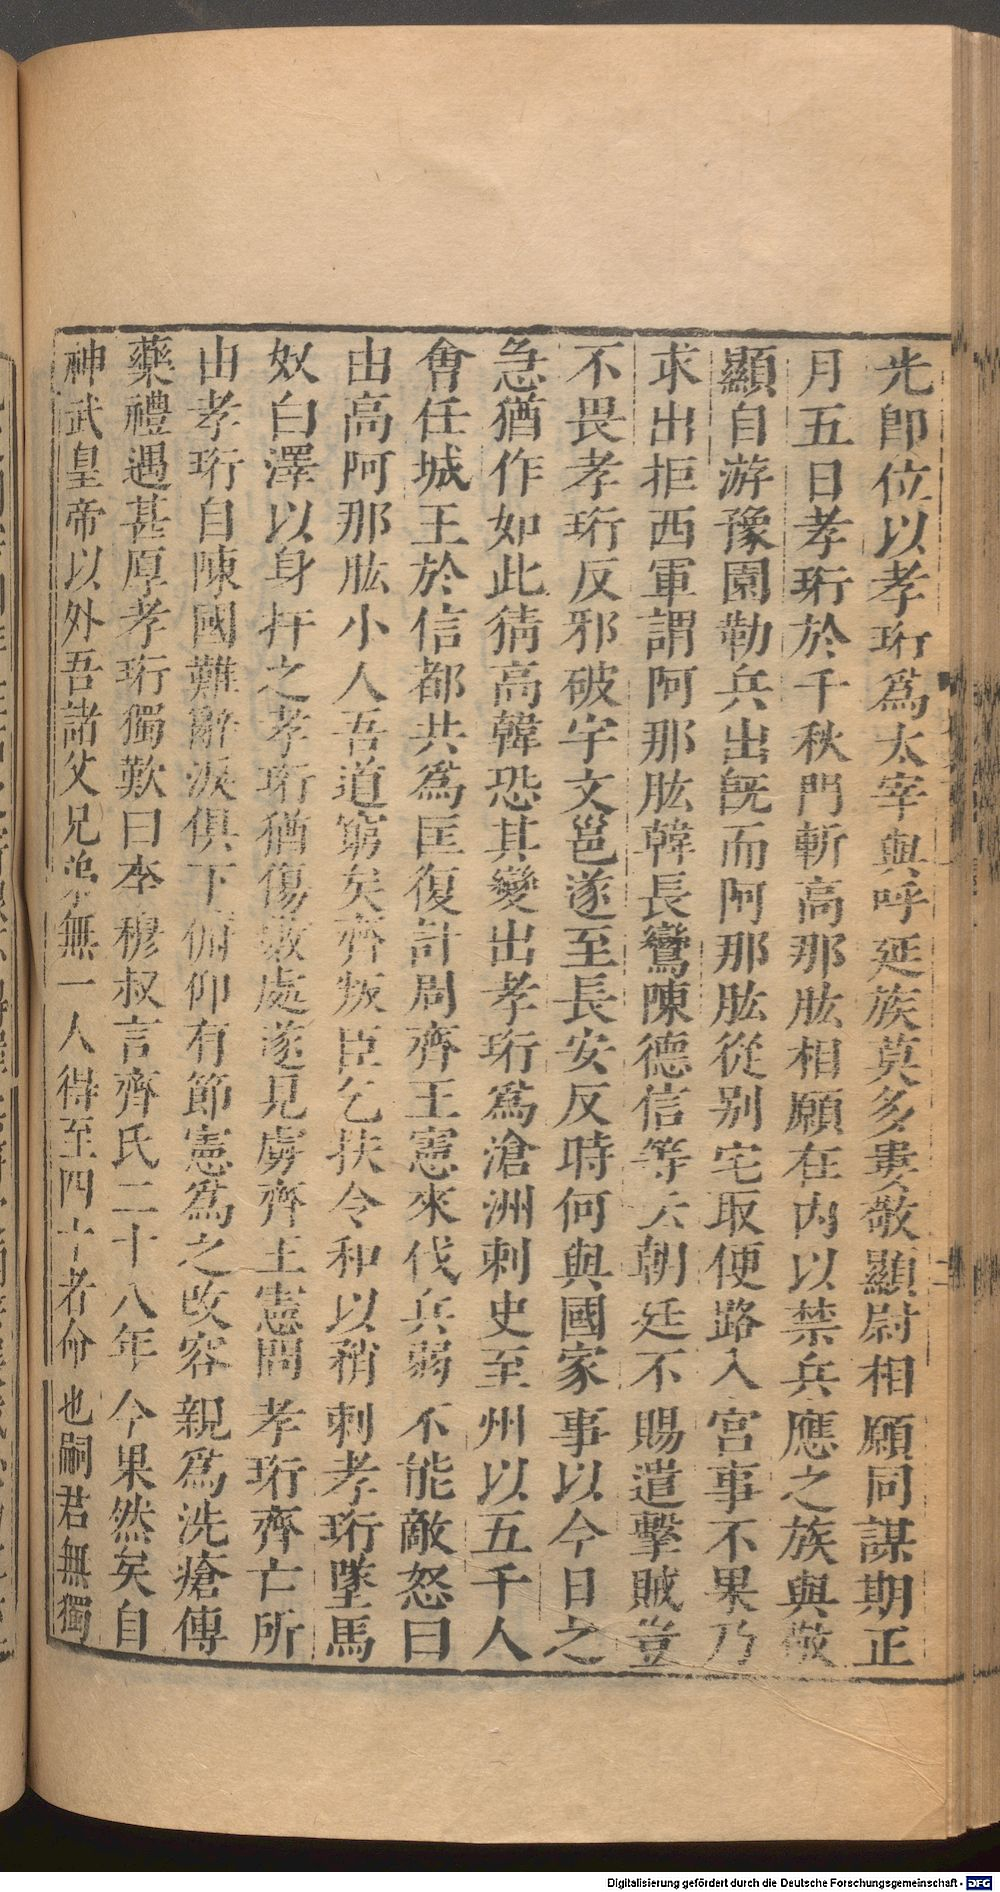 光即位以孝珩爲太宰與呼延族莫多婁敬顯尉相願同謀期正
月五日孝珩於千秋門斬高那肱相願在内以禁兵應之族與敬
顯自游豫園勒兵出旣而阿那肱從别宅取便路入宮事不果乃
求出拒西軍謂阿那肱韓長鸞陳德信等云朝廷不賜遣擊賊豈
不畏孝珩反邪破宇文邕遂至長安反時何與國家事以今日之
急猶作如此猜高韓恐其變出孝珩爲滄洲刺史至州以五千人
會任城王於信都共爲匡復計周齊王憲來伐兵弱不能敵怒曰
由高阿那肱小人吾道窮矣齊叛臣乞扶令和以矟刺孝珩墜馬
奴白澤以身扞之孝珩猶傷數處遂見虜齊王憲問孝珩齊亡所
由孝珩自陳國難辭淚俱下俯仰有節憲爲之改容親爲洗瘡傳
藥禮遇甚厚孝珩獨歎曰李穆叔言齊氏二十八年今果然矣自
神武皇帝以外吾諸父兄弟無一人得至四十者命也嗣君無獨
Digitalisierung gefördert durch die Deutsche Forschungsgemeinschaft - DFG